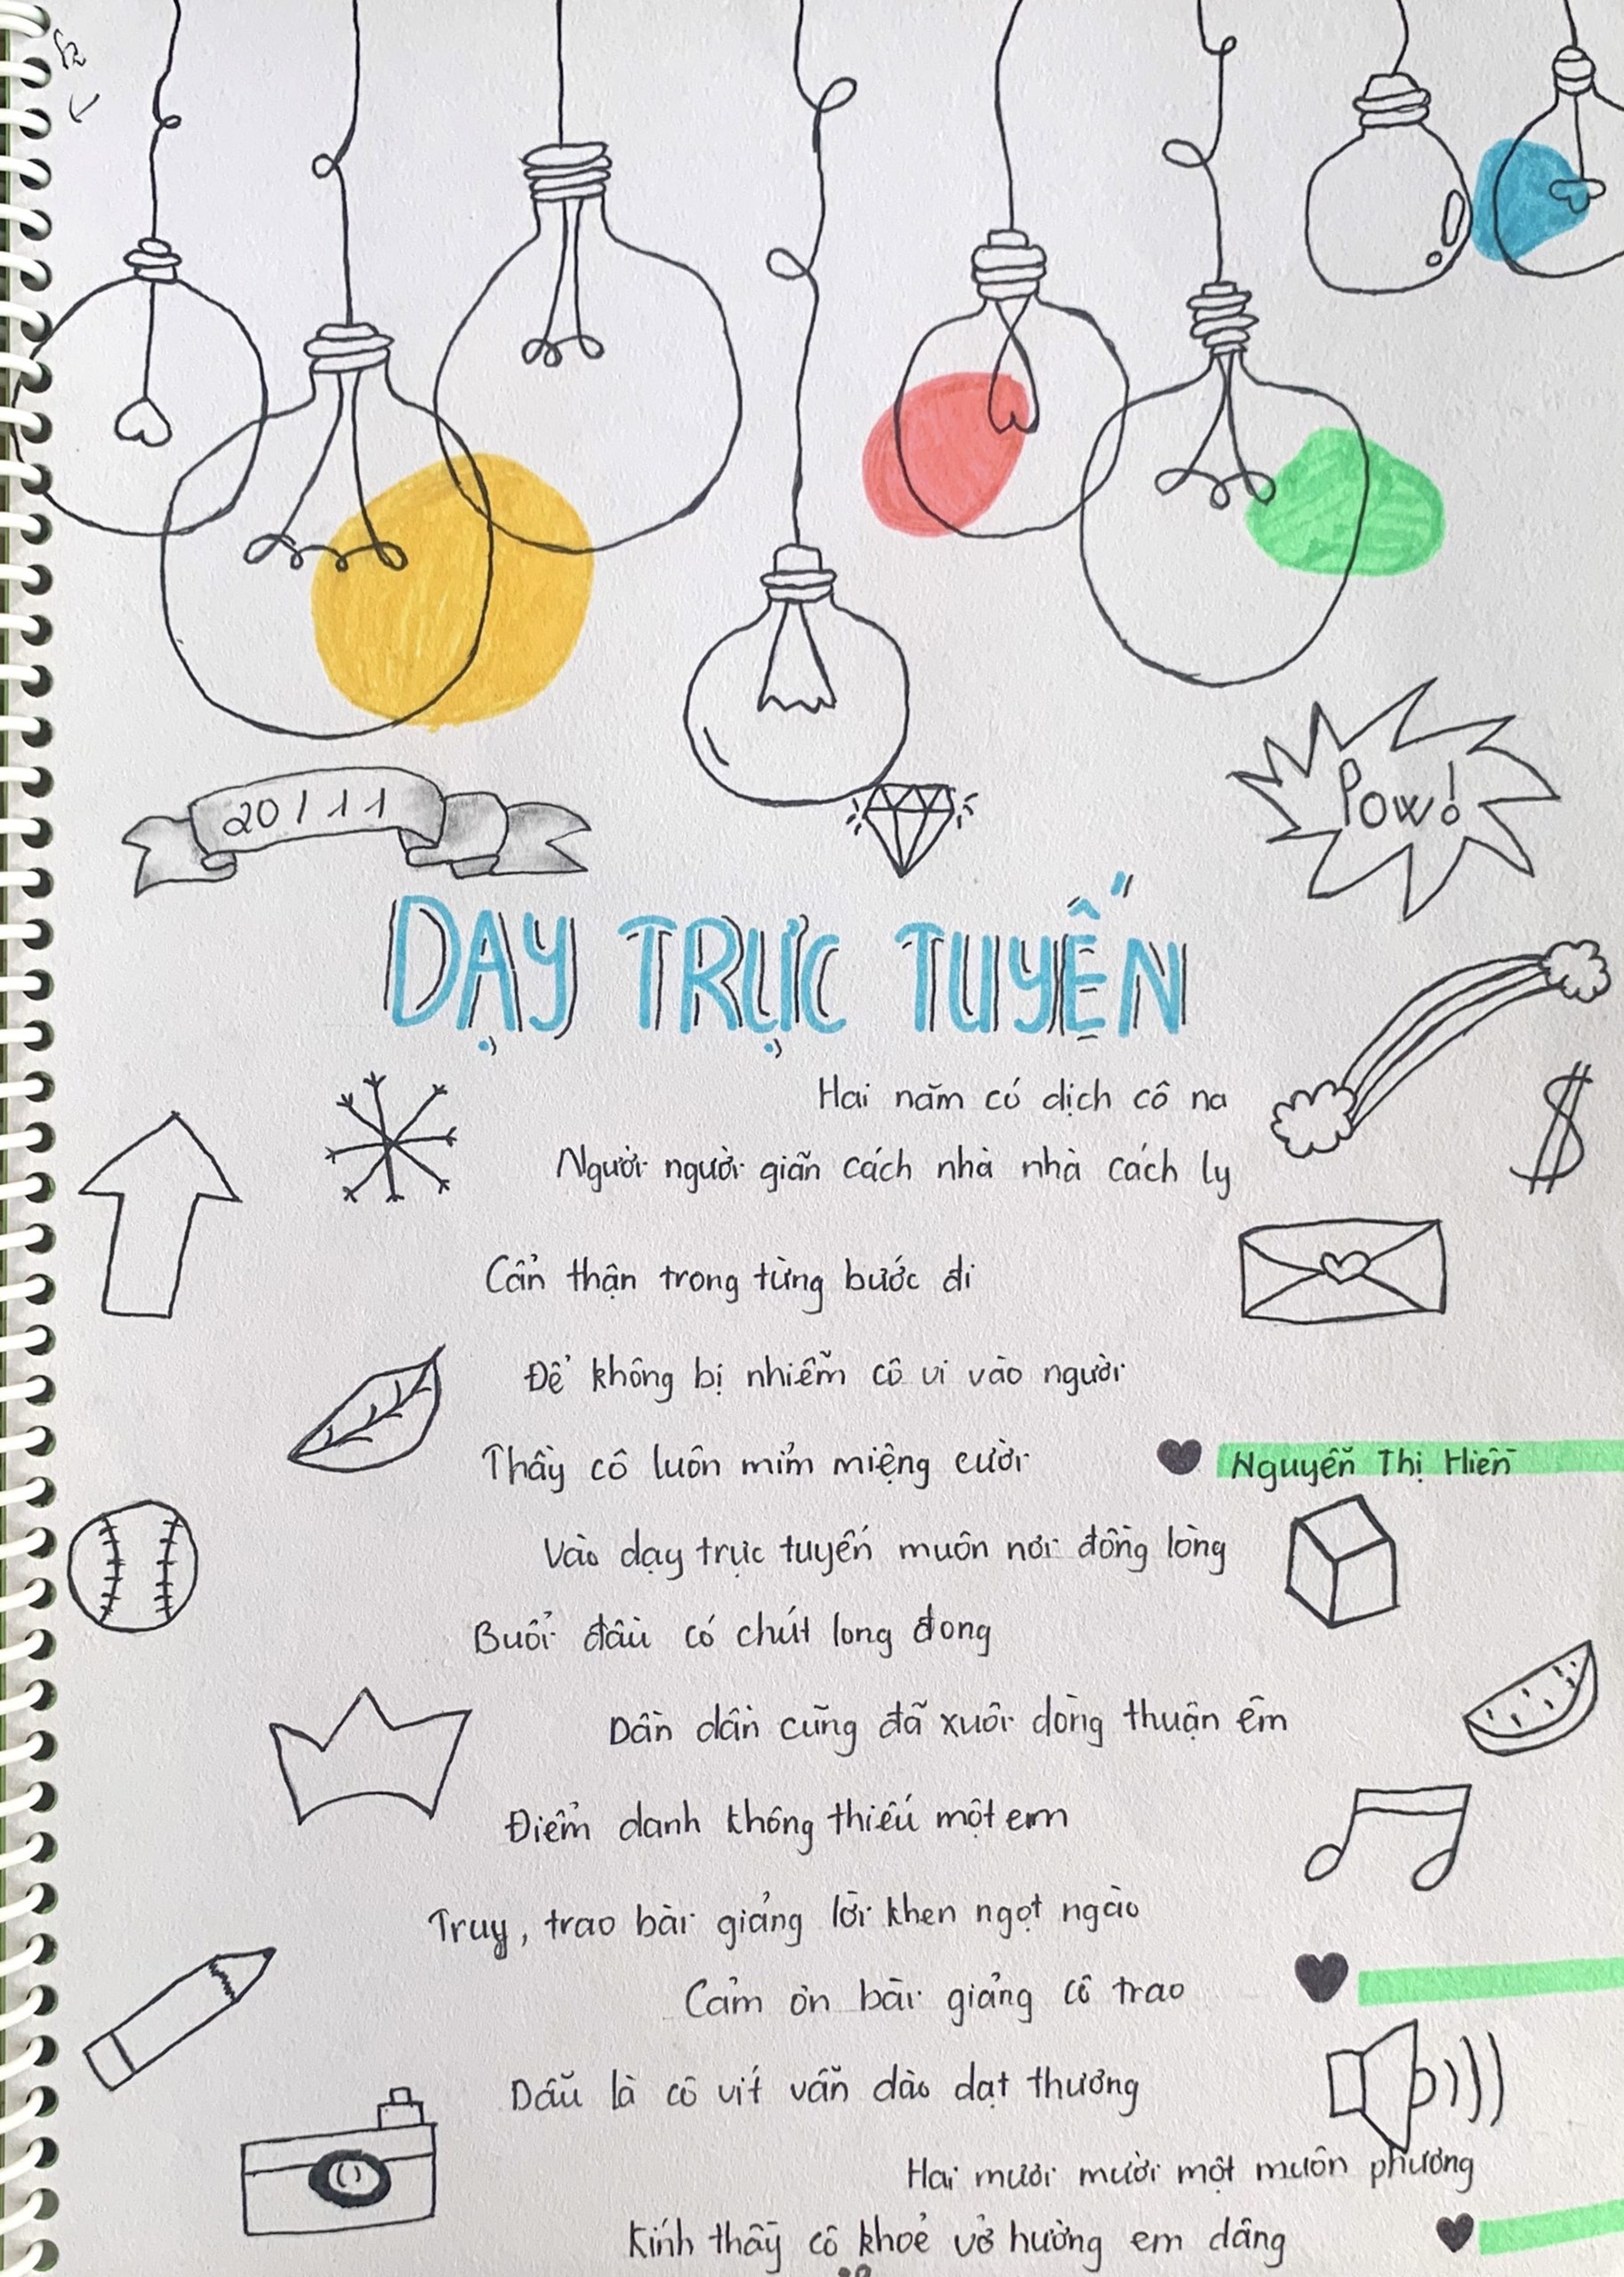 20/11
Pow!
DẠY TRỰC TUYẾN
Hai năm có dịch cô na
Người người giãn cách nhà nhà cách ly
Cẩn thận trong từng bước đi
Để không bị nhiễm cô vi vào người
Thầy cô luôn mỉm miệng cười
Nguyễn Thị Hiền
Vào dạy trực tuyến muôn nơi đồng lòng
Buổi đầu có chút long đong
Dần dần cũng đã xuôi dòng thuận êm
Điểm danh không thiếu một em
Truy, trao bài giảng lời khen ngọt ngào
Cảm ơn bài giảng cô trao
Dẫu là cô vít vẫn dào dạt thương
Hai mươi mười một muôn phương
Kính thầy cô khoẻ em dâng